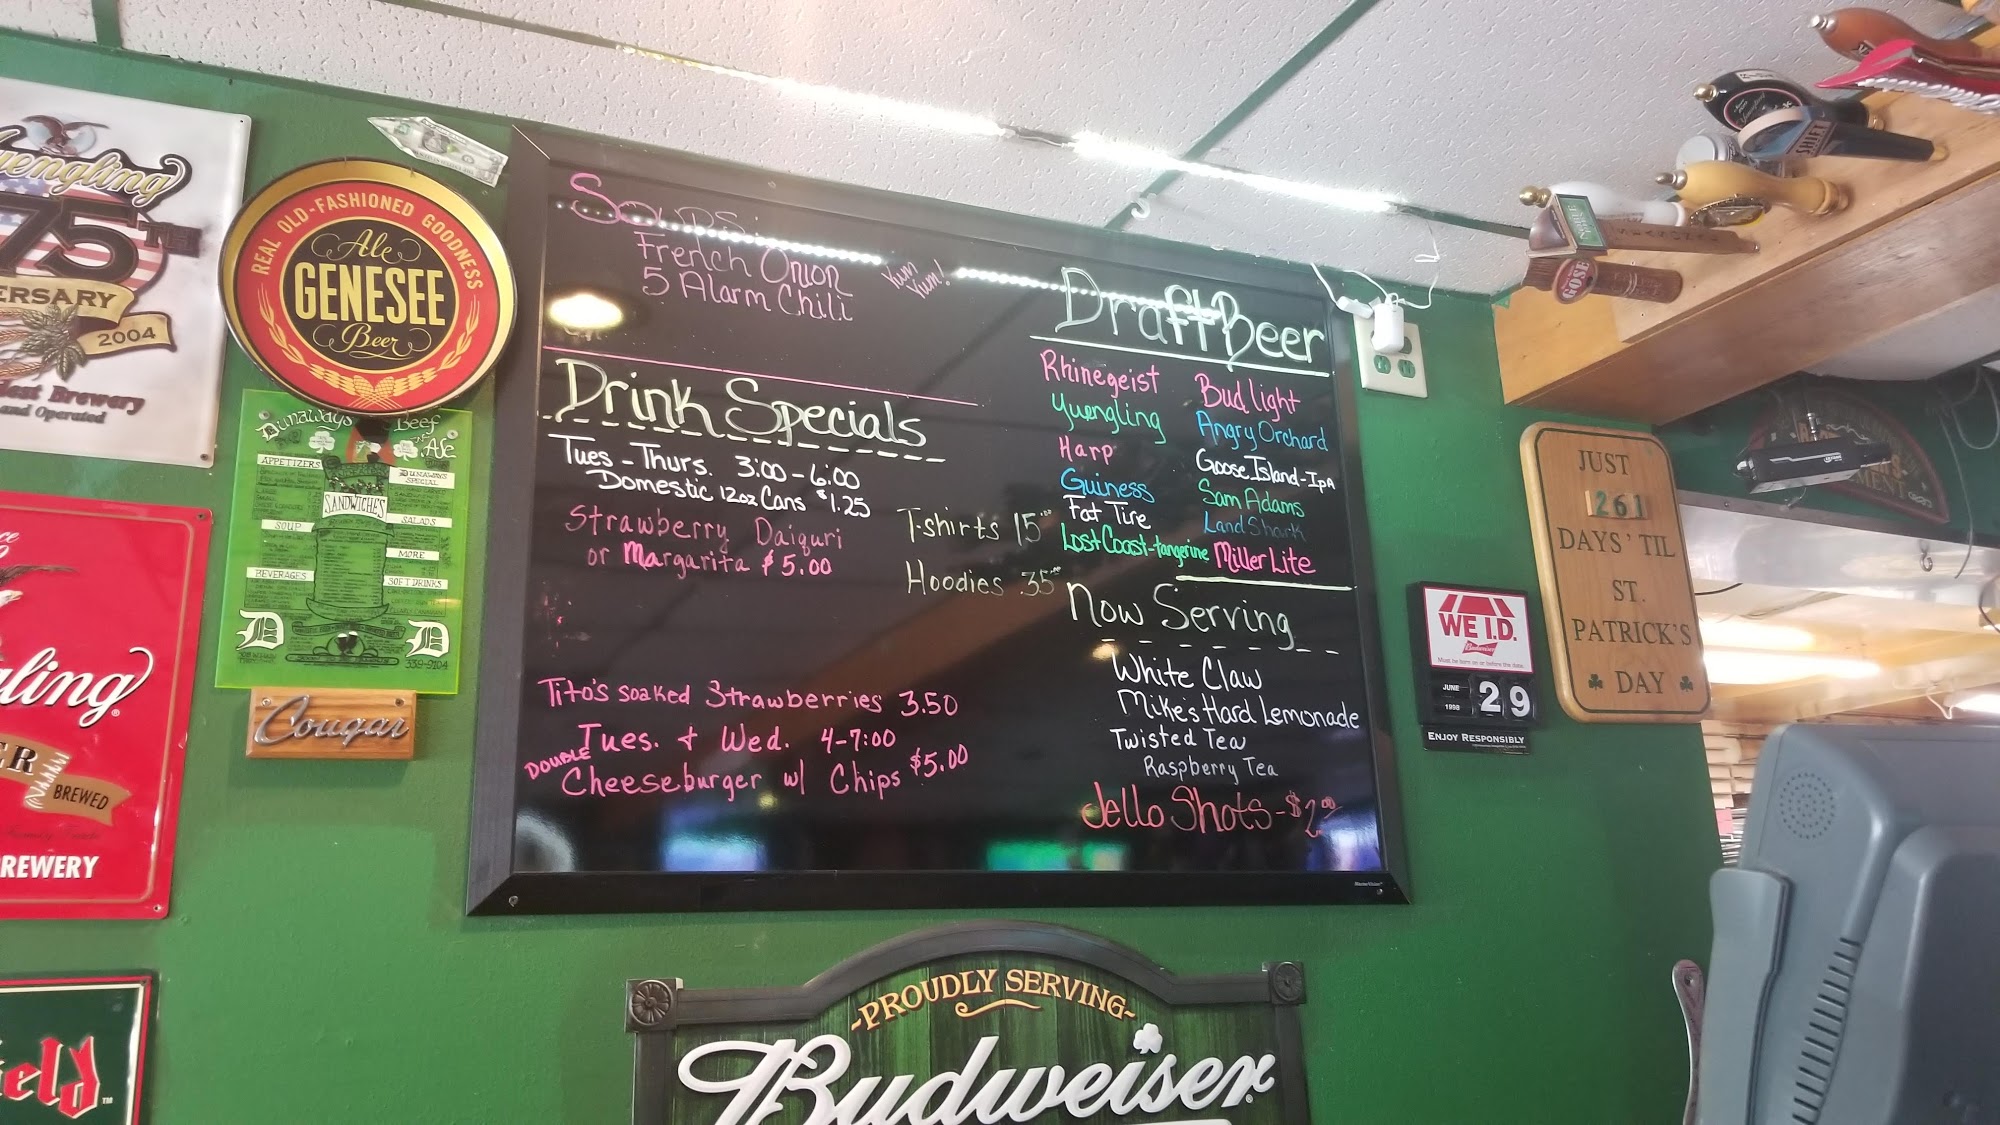 uengling
75TH
ERSARY
2004
dest Brewery
and Operated
REAL OLD-FASHIONED GOODNESS
Ale
GENESEE
Beer
Dunaways Beef
Ale
APPETIZERS
DUNAWAYS
SPECIAL
SANDWICHES
SALADS
SOUP
MORE
BEVERAGES
SOFT DRINKS
D D
339-9104
Cougar
ling
ER
BREWED
REWERY
ield
Soups:
French Onion
5 Alarm Chili
Yum
Yum!
Drink Specials
Tues - Thurs. 3:00 - 6:00
Domestic 12oz Cans $1.25
Strawberry Daiquri
or Margarita $5.00
T-shirts 15.00
Hoodies 35.00
Tito's soaked Strawberries 3.50
Tues. + Wed. 4-7:00
DOUBLE
Cheeseburger w/ Chips $5.00
Draft Beer
Rhinegeist
Yuengling
Harp
Guiness
Fat Tire
Lost Coast-tangerine
Bud light
Angry Orchard
Goose Island-IPA
Sam Adams
Land Shark
Miller Lite
Now Serving
White Claw
Mikes Hard Lemonade
Twisted Tea
Raspberry Tea
Jello Shots - $2.00
-PROUDLY SERVING-
Budweiser
WE I.D.
Budweiser
Must be born on or before this date.
JUNE
1998
29
ENJOY RESPONSIBLY
JUST
261
DAYS' TIL
ST.
PATRICK'S
DAY
SHIFT
GOSE